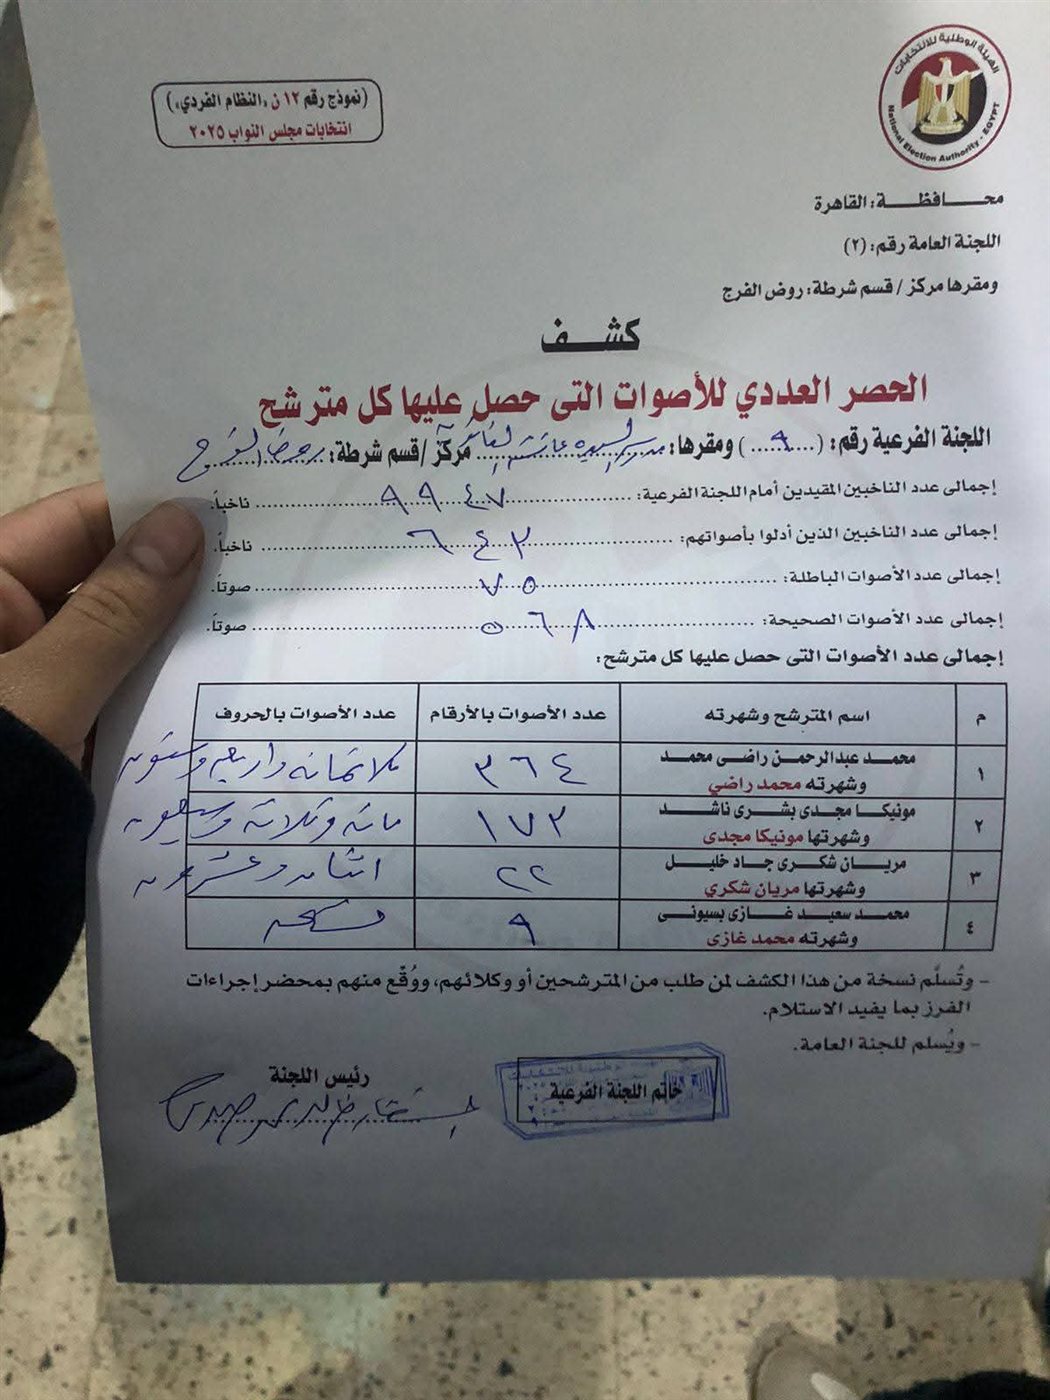 الهيئة الوطنية للانتخابات
National Election Authority - EGYPT
(نموذج رقم ١٢ ن «النظام الفردي»)
انتخابات مجلس النواب ٢٠٢٥
محــــافظــــــة: القاهرة
اللجنة العامة رقم: (٢)
ومقرها مركز / قسم شرطة: روض الفرج
كشـــف
الحصر العددي للأصوات التى حصل عليها كل مترشح
اللجنة الفرعية رقم: (٩) ومقرها: السيدة عائشة مركز /قسم شرطة: روض الفرج
إجمالى عدد الناخبين المقيدين أمام اللجنة الفرعية: ٩٩٤٧ ناخباً.
إجمالى عدد الناخبين الذين أدلوا بأصواتهم: ٦٤٣ ناخباً.
إجمالى عدد الأصوات الباطلة: ٧٥ صوتاً.
إجمالى عدد الأصوات الصحيحة: ٥٦٨ صوتاً.
إجمالى عدد الأصوات التى حصل عليها كل مترشح:
م اسم المترشح وشهرته عدد الأصوات بالأرقام عدد الأصوات بالحروف
١ محمد عبدالرحمن راضى محمد ٣٦٤ ثلاثمائة واربعه وستون
وشهرته محمد راضي
٢ مونيكا مجدى بشرى ناشد ١٧٣ مائة وثلاثة وسبعون
وشهرتها مونيكا مجدى
٣ مريان شكرى جاد خليل ٢٢ اثنان وعشرون
وشهرتها مريان شكري
٤ محمد سعيد غازى بسيونى ٩ تسعه
وشهرته محمد غازى
- وتُسلَّم نسخة من هذا الكشف لمن طلب من المترشحين أو وكلائهم، ووُقِّع منهم بمحضر إجراءات
الفرز بما يفيد الاستلام.
- ويُسلم للجنة العامة.
رئيس اللجنة
خاتم اللجنة الفرعية